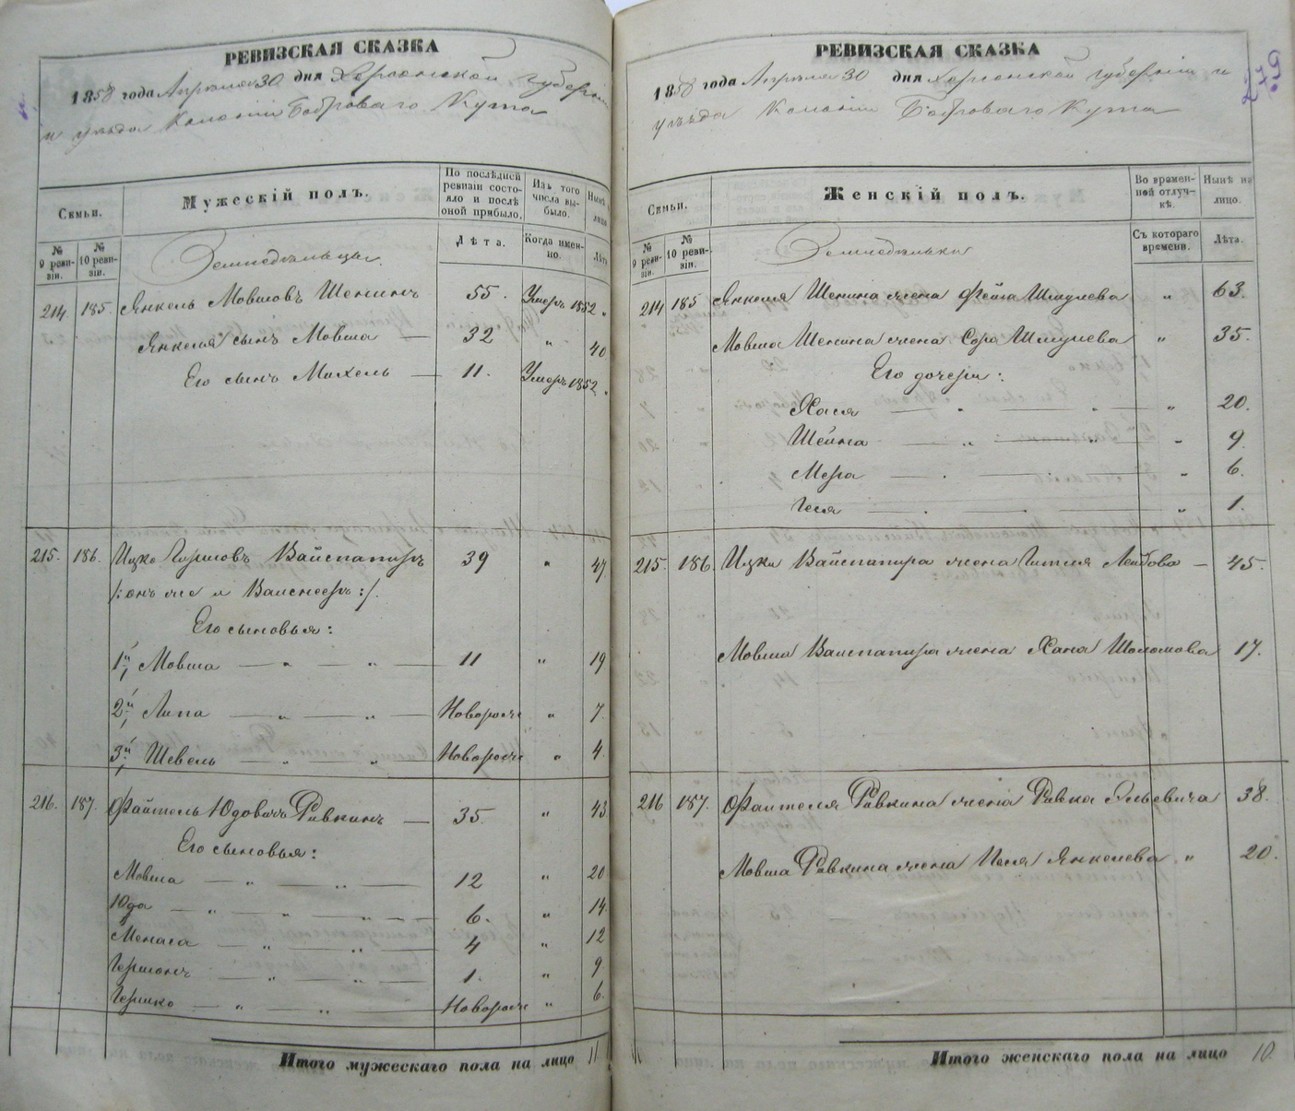 РЕВИЗСКАЯ СКАЗКА
1858 года Апреля 30 дня Херсонской губерніи
и уѣзда Колоніи Боброваго Кута
Семьи.
Мужескій полъ.
По послѣдней ревизіи состояло и послѣ оной прибыло.
Изъ того числа выбыло.
Нынѣ на лицо
№ 9 ревизіи.
№ 10 ревизіи.
Лѣта.
Когда именно.
Лѣта
Земледѣльцы
214 185. Янкель Мовшовъ Шенинъ 55. Умеръ 1852 „
Янкеля сынъ Мовша — 32 „ 40
Его сынъ Михель — 11. Умеръ 1852 „
215. 186. Ицко Гиршовъ Вайспапиръ 39 „ 47
/: онъ же и Вайснеръ :/.
Его сыновья:
1й Мовша — „ — „ — 11 „ 19
2й Липа — „ — „ — Новорож „ 7.
3й Шевель — „ — „ Новорож „ 4.
216. 187. Файтель Юдовичъ Ривкинъ — 35. „ 43
Его сыновья:
Мовша — „ — „ — 12 „ 20
Юда — „ — „ — 6. „ 14.
Менаса — „ — „ — 4 „ 12
Гершонъ — „ — „ — 1. „ 9
Гершко — „ — „ — Новорож „ 6.
Итого мужескаго пола на лицо 11
РЕВИЗСКАЯ СКАЗКА
1858 года Апреля 30 дня Херсонской губерніи и
уѣзда Колоніи Боброваго Кута
Семьи.
Женскій полъ.
Во временной отлучкѣ.
Нынѣ на лицо.
№ 9 ревизіи.
№ 10 ревизіи.
Съ котораго времени.
Лѣта.
Земледѣльки
214 185 Янкеля Шенина жена Фейга Шмулева „ 63.
Мовши Шенина жена Сора Шмулева „ 35.
Его дочери:
Хася — „ — „ — „ 20.
Шейна — „ — „ — „ 9.
Мера — . — . — „ 6.
Геся — . — . — „ 1.
215. 186. Ицки Вайспапира жена Гитля Лейбова — 45.
Мовши Вайспапира жена Хана Шоломова 17.
216 187. Файтеля Ривкина жена Ривка Эльевича 38.
Мовши Ривкина жена Песя Янкелева „ 20.
Итого женскаго пола на лицо 10.